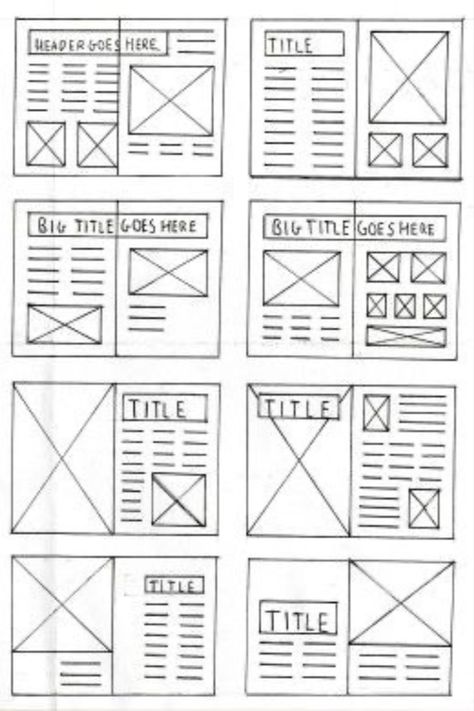 HEADER GOES HERE
TITLE
BIG TITLE GOES HERE
BIG TITLE GOES HERE
TITLE
TITLE
TITLE
TITLE